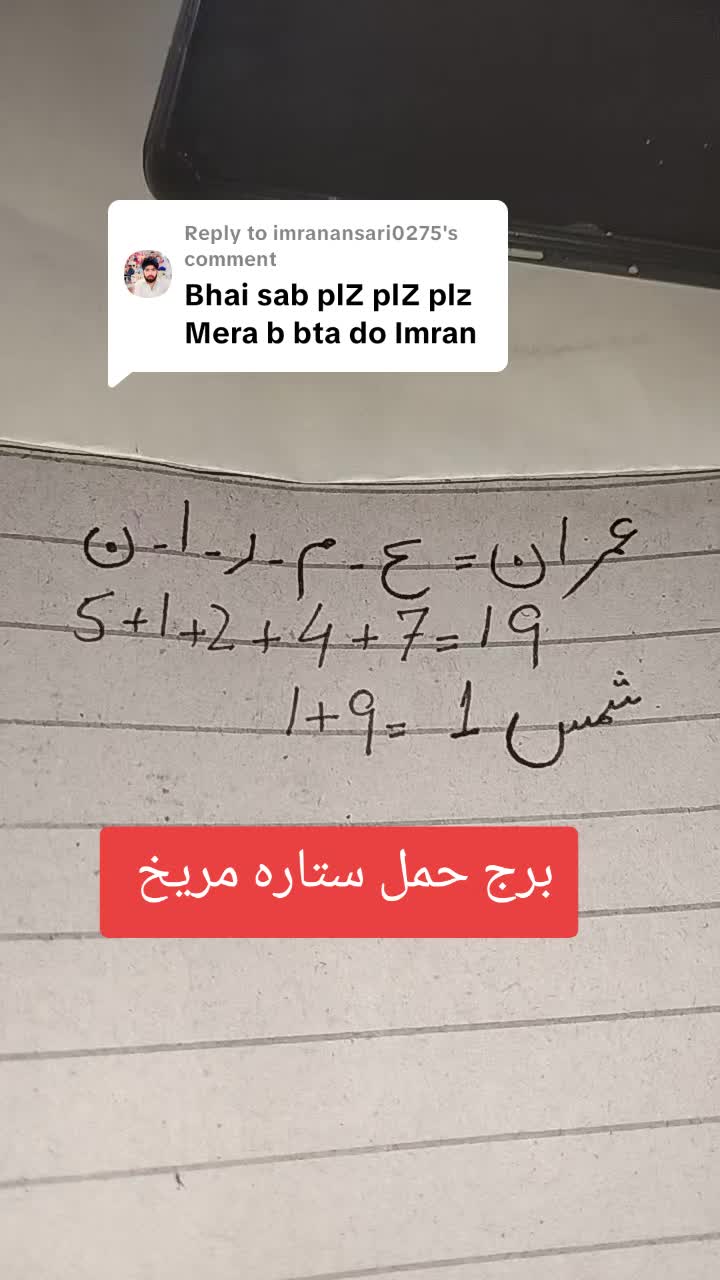 Reply to imranansari0275's
comment
Bhai sab plZ plZ plz
Mera b bta do Imran
عمران = ع - م - ر - ا - ن
5+1+2+4+7=19
1+9= 1 شمس
برج حمل ستاره مريخ